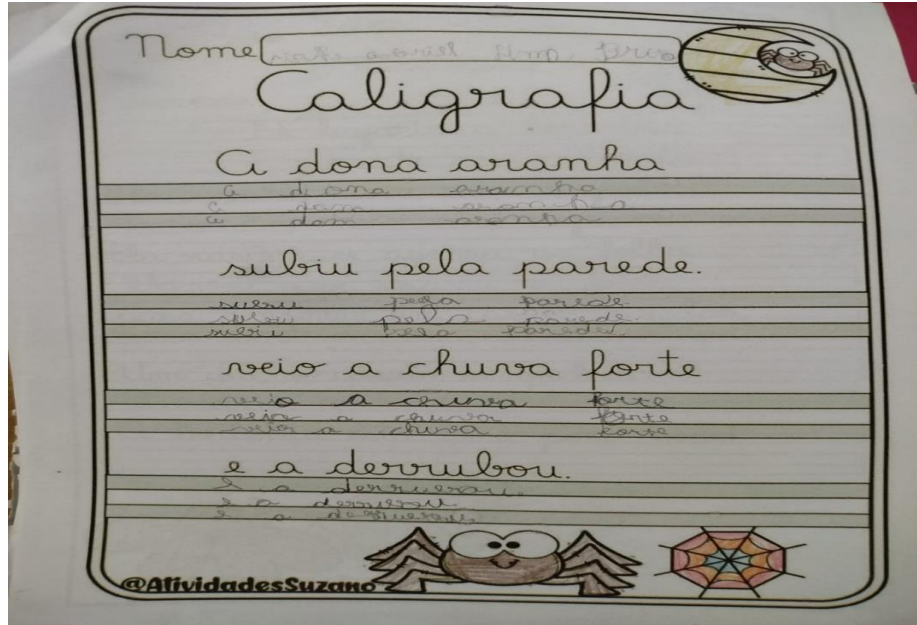 Nome
Caligrafia
A dona aranha
a dona aranha
a dona aranha
a dona aranha
subiu pela parede.
pela parede.
subiu pela parede.
subiu pela parede.
veio a chuva forte
veio a chuva forte
veio a chuva forte
veio a chuva forte
e a derrubou.
e a
e a
e a
@AtividadesSuzano